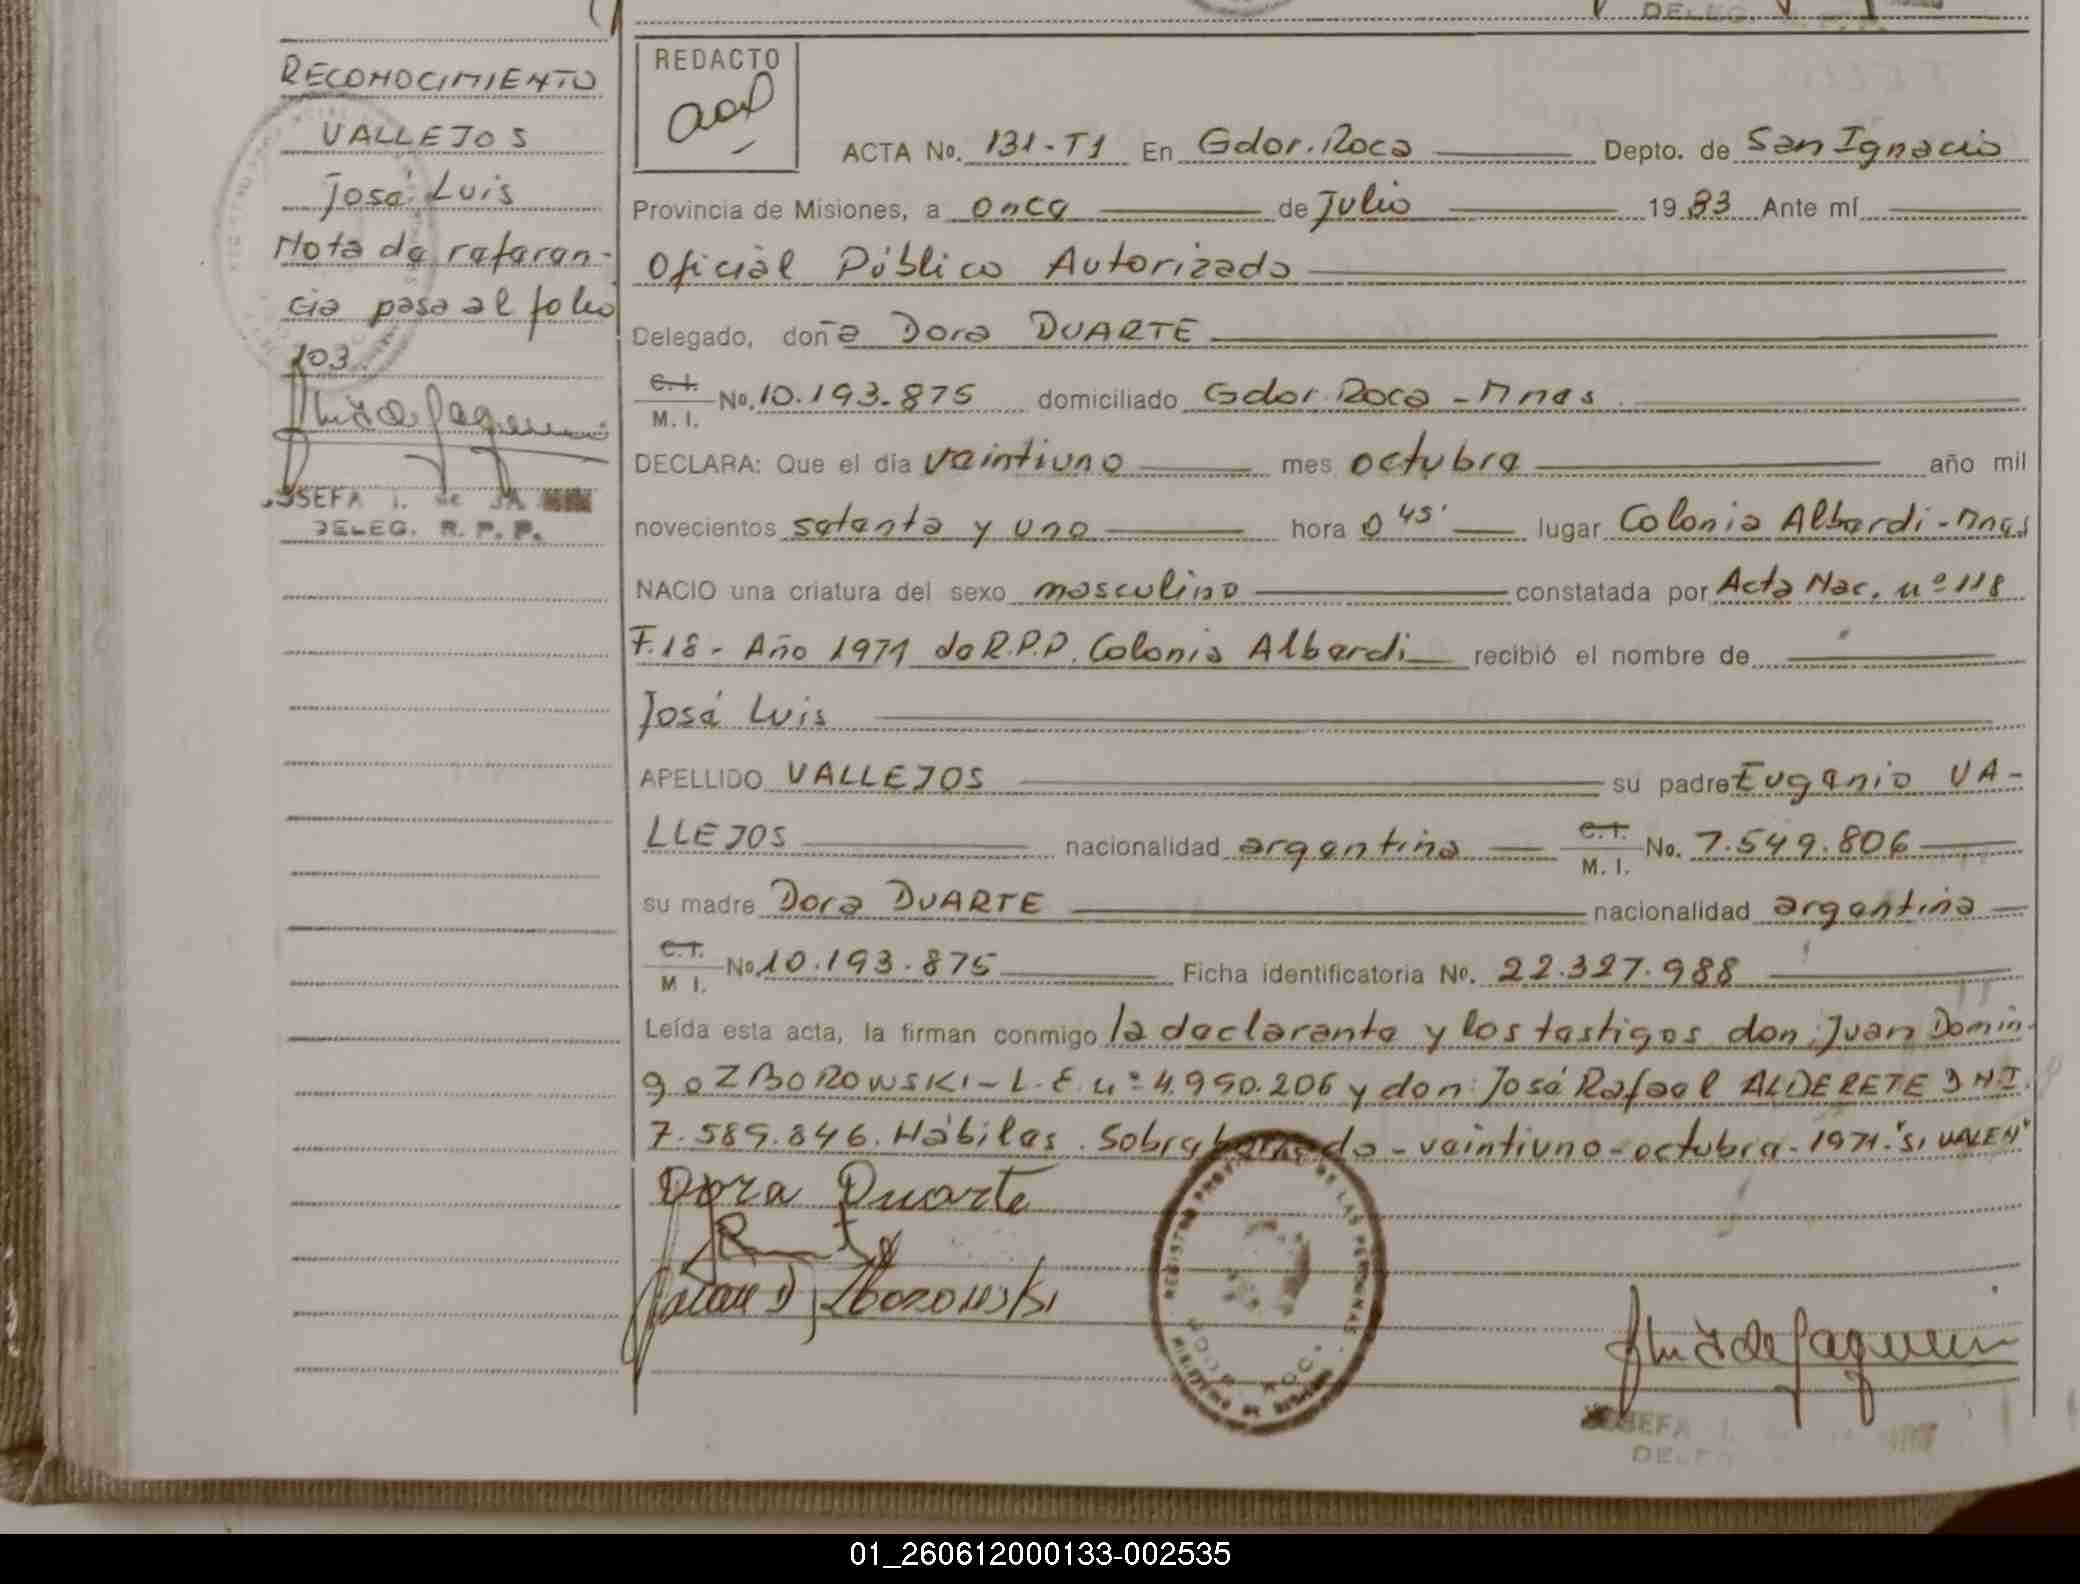 RECONOCIMIENTO
VALLEJOS
José Luis
Nota de referen-
cia pasa al folio
103
JOSEFA I. de JA
DELEG. R. P. P.
DELEG.
REDACTO
ACTA No. 131-T1 En Gdor. Roca Depto. de San Ignacio
Provincia de Misiones, a once de Julio 1983 Ante mí
Oficial Público Autorizado
Delegado, doña Dora DUARTE
C.I. M. I. No. 10.193.875 domiciliado Gdor. Roca - Mnes.
DECLARA: Que el día veintiuno mes octubre año mil
novecientos setenta y uno hora 0 45' lugar Colonia Alberdi - Mnes
NACIO una criatura del sexo masculino constatada por Acta Nac. nº 118
F. 18 - Año 1971 de R.P.P. Colonia Alberdi recibió el nombre de
José Luis
APELLIDO VALLEJOS su padre Eugenio VA-
LLEJOS nacionalidad argentina C.I. M. I. No. 7.549.806
su madre Dora DUARTE nacionalidad argentina
C.I. M I. No 10.193.875 Ficha identificatoria No. 22.327.988
Leída esta acta, la firman conmigo la declarante y los testigos don: Juan Domin-
go ZBOROWSKI - L.E. nº 4.990.206 y don: José Rafael ALDERETE DNI.
7.589.846. Hábiles. Sobreborrado - veintiuno - octubre - 1971. "SI VALEN"
Dora Duarte
Juan D. Zborowski
REGISTRO PROVINCIAL DE LAS PERSONAS
GDOR. ROCA
MINISTERIO DE GOBIERNO
JOSEFA I.
DELEG
01_260612000133-002535